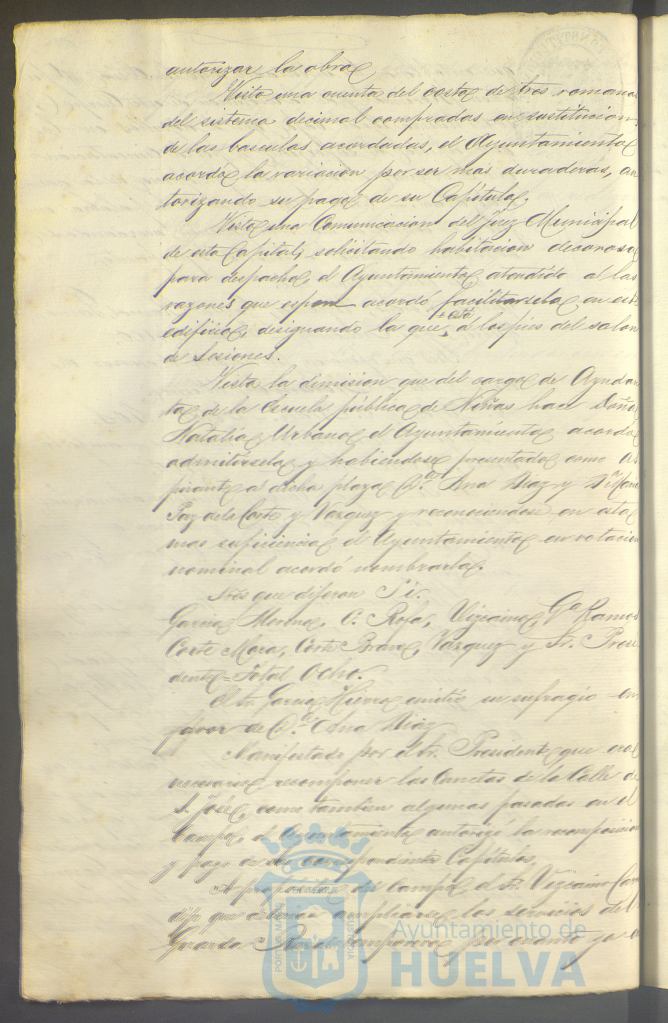 autorizar la obra
Vista una cuenta del costo de tres romanas
del sistema decimal compradas en sustitucion
de las basculas acordadas, el Ayuntamiento
acordó la variacion por ser mas duraderas, au
torizando su pago de su Capitulo,
Vista una Comunicacion del Juez Municipal
de esta Capital, solicitando habitacion decorosa
para despacho, el Ayuntamiento atendido a las
razones que espone acordó facilitarsela en este
edificio, designando la que está a los pies del salon
de Sesiones.
Vista la dimision que del cargo de Ayudan
ta de la Escuela pública de Niñas hace Doña
Natalia Urbano el Ayuntamiento acordó
admitirsela y habiendose presentado como as
pirante a dicha plaza D.ª Ana Diaz y D.ª
Paz de la Corte y Vazquez y reconociendose en esta
mas suficiencia el Ayuntamiento en votacion
nominal acordó nombrarla.
Sres que dijeron Sí.
Garcia Morena, Rofa, Vizcaino, G.ª Ramos
Corte Mora, Corte Bravo, Vazquez y Sr. Presi
dente = Total Ocho.
El Sr. Garcia Hierro emitió su sufragio en
favor de D.ª Ana Diaz
Manifestado por el Sr. Presidente que era
necesario recomponer las Cunetas de la Calle de
S. José, como tambien algunas pasadas en el
Campo, el Ayuntamiento autorizó la recomposicion
y pago de sus correspondientes Capitulos,
A proposito del Campo el Sr. Vizcaino
dijo que debian ampliarse los servicios del
Guarda por cuanto ya
Ayuntamiento de
HUELVA